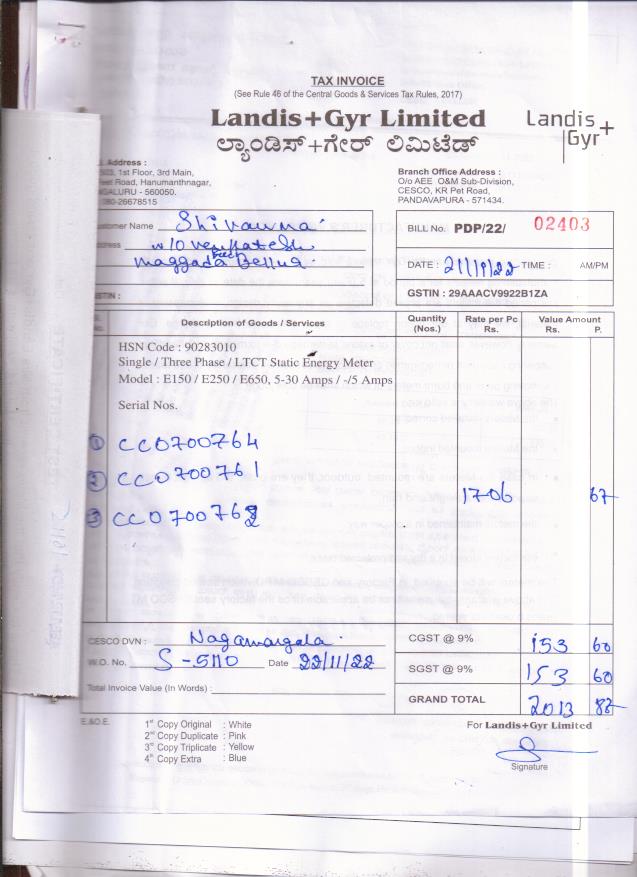 TAX INVOICE
(See Rule 46 of the Central Goods & Services Tax Rules, 2017)
Landis+Gyr Limited
ಲ್ಯಾಂಡಿಸ್+ಗೇರ್ ಲಿಮಿಟೆಡ್
Landis+
Gyr
Address :
1st Floor, 3rd Main,
Road, Hanumanthnagar,
- 560050.
080-26678515
Branch Office Address :
O/o AEE O&M Sub-Division,
CESCO, KR Pet Road,
PANDAVAPURA - 571434.
Name Shivamma
w/o Venkatesh
Maggada Bellur
BILL No. PDP/22/ 02403
DATE : TIME : AM/PM
GSTIN : 29AAACV9922B1ZA
Description of Goods / Services Quantity (Nos.) Rate per Pc Rs. Value Amount Rs. P.
HSN Code : 90283010
Single / Three Phase / LTCT Static Energy Meter
Model : E150 / E250 / E650, 5-30 Amps / -/5 Amps
Serial Nos.
① CC0700764
② CC0700761
③ CC0700762
1706 67
CESCO DVN : Nagamangala
W.O. No. S-5110 Date 22/11/22
Total Invoice Value (In Words) :
CGST @ 9% 153 60
SGST @ 9% 153 60
GRAND TOTAL 2013 87
E.&O.E.
1st Copy Original : White
2nd Copy Duplicate : Pink
3rd Copy Triplicate : Yellow
4th Copy Extra : Blue
For Landis+Gyr Limited
Signature